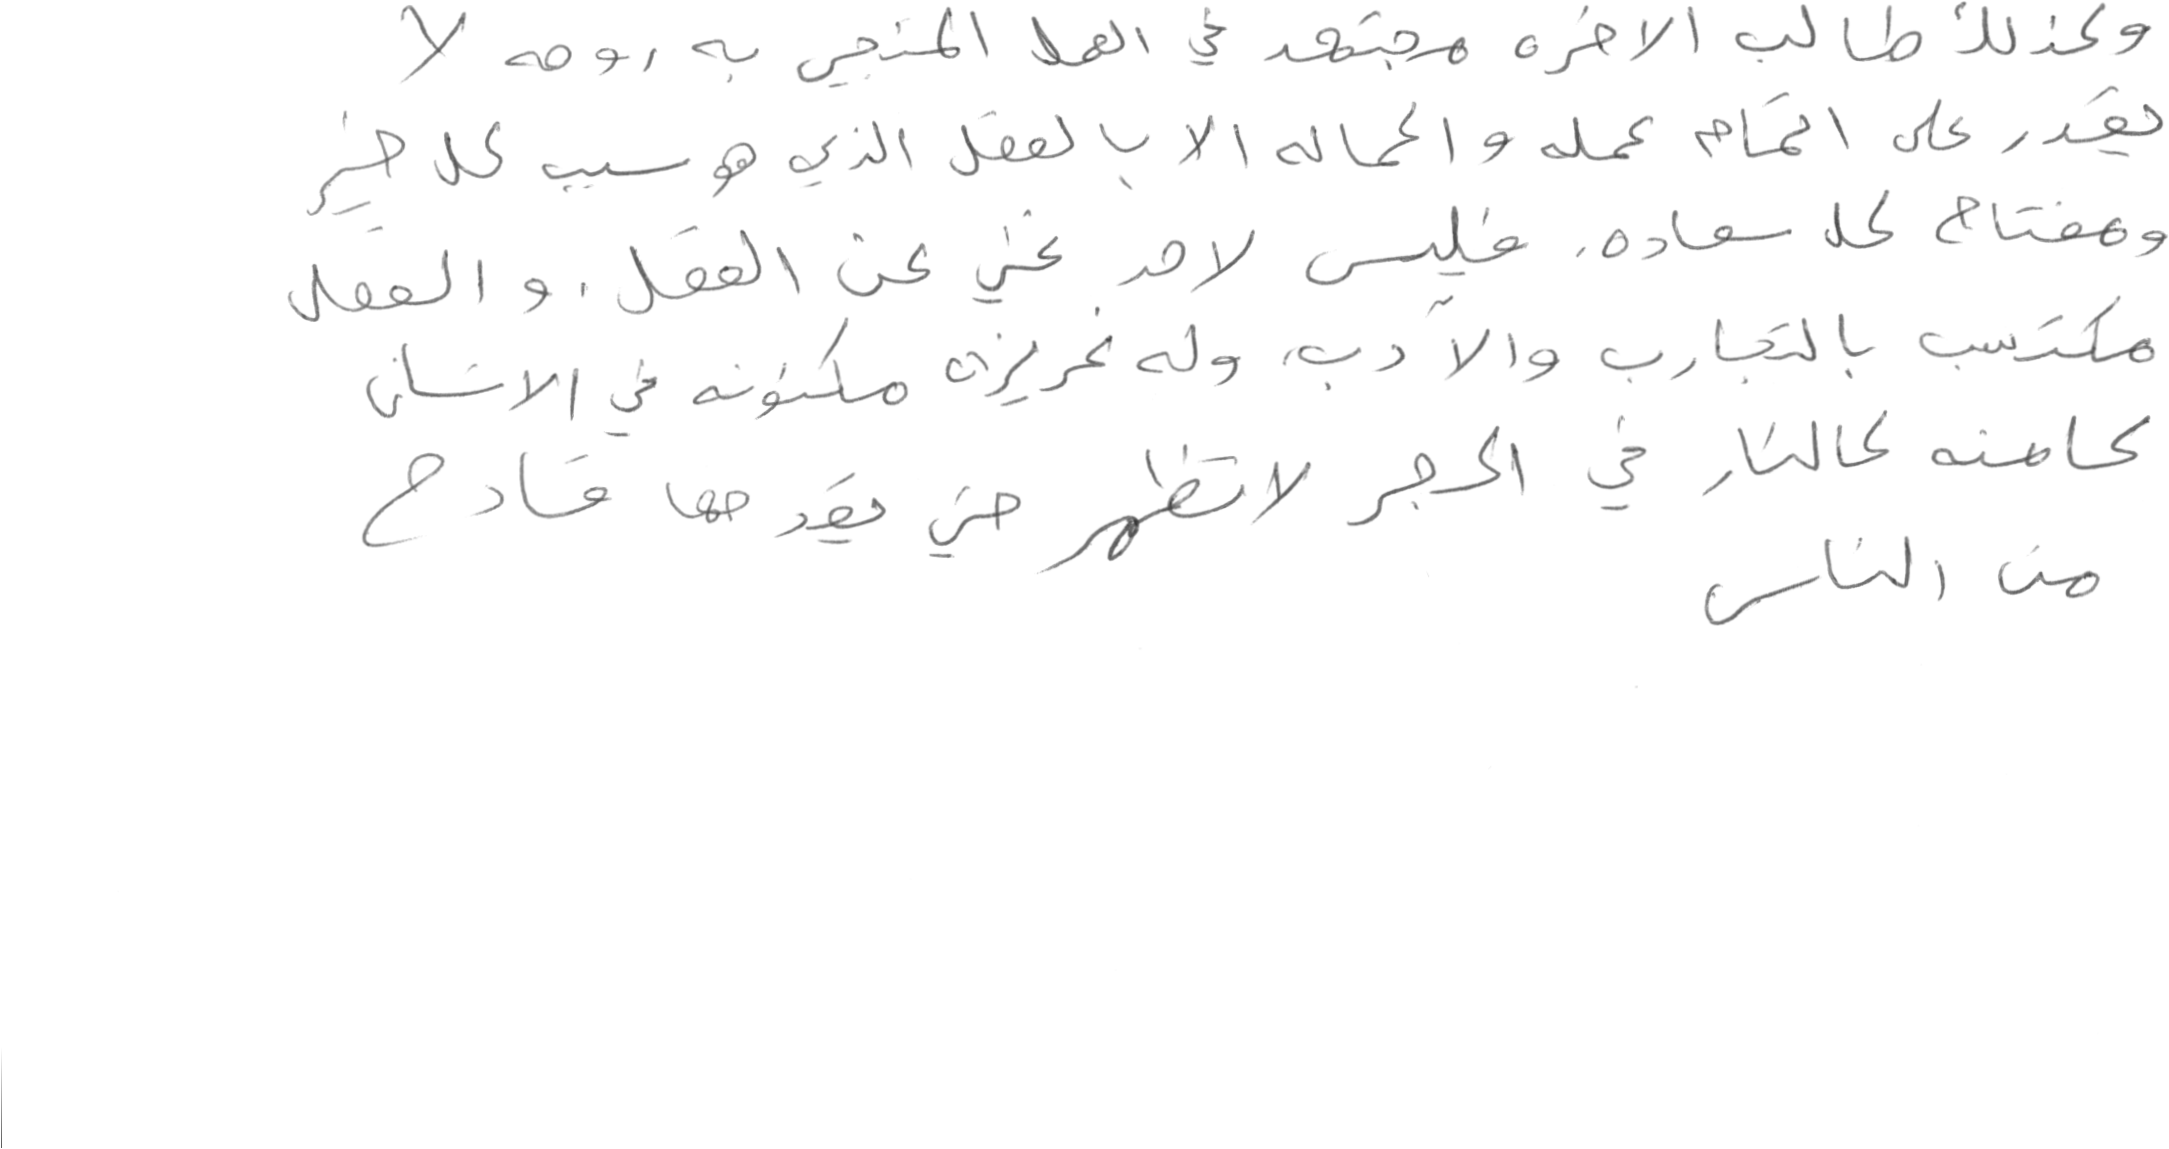 وكذلك طالب الاخره مجتهد في العمل المنجي به روحه لا
يقدر على اتمام عمله واكماله الا بالعقل الذي هو سبب كل خير
ومفتاح كل سعاده، فليس لاحد غنى عن العقل، والعقل
مكتسب بالتجارب والآدب، وله غريزه مكنونه في الانسان
كامنه كالنار في الحجر لا تظهر حتى يقدحها قادح
من الناس